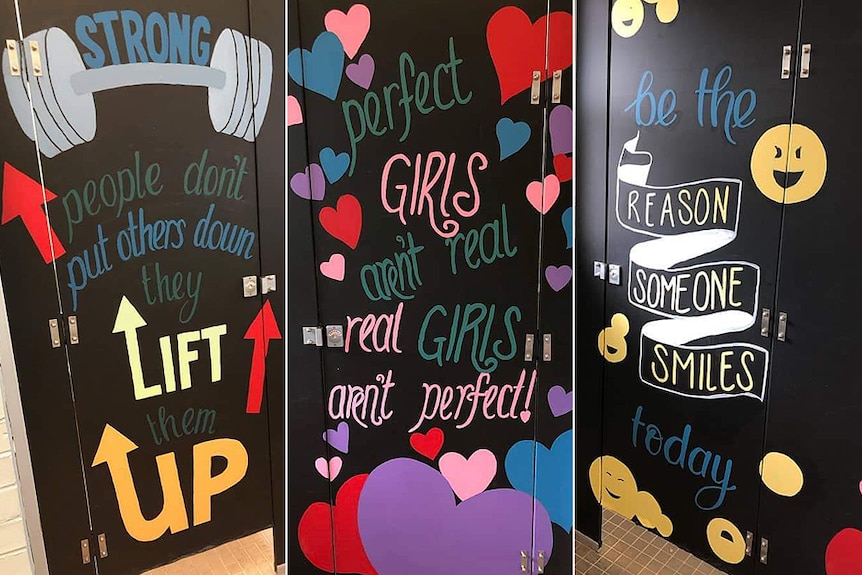 STRONG
people don't
put others down
they
LIFT
them
UP
perfect
GIRLS
aren't real
real GIRLS
aren't perfect!
be the
REASON
SOMEONE
SMILES
today